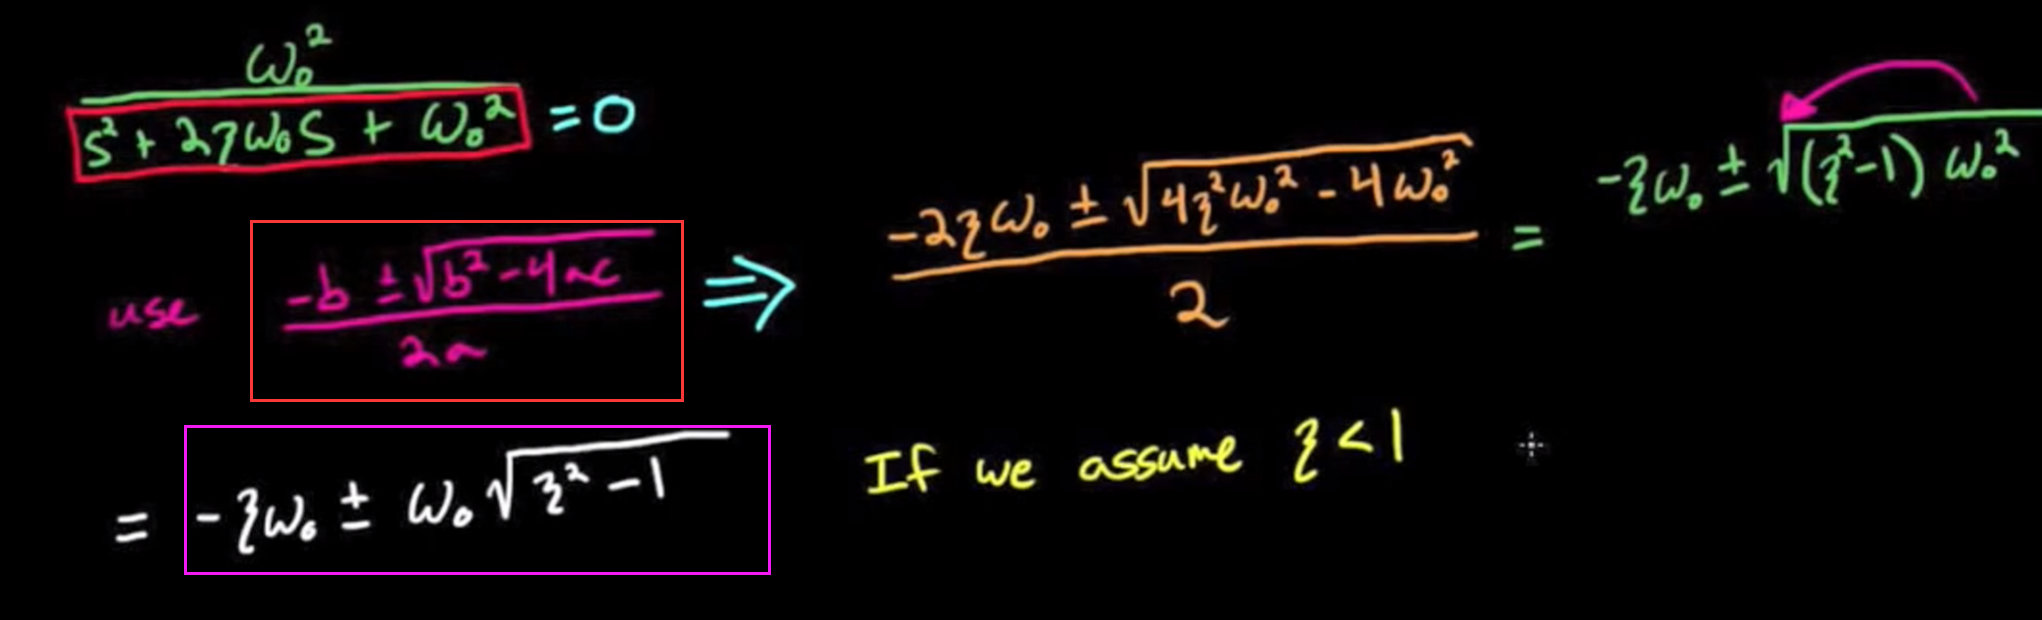 ω₀²
s² + 2ζω₀s + ω₀² = 0
use (-b ± √(b² - 4ac)) / 2a ⇒ (-2ζω₀ ± √(4ζ²ω₀² - 4ω₀²)) / 2 = -ζω₀ ± √((ζ²-1) ω₀²)
= -ζω₀ ± ω₀ √(ζ² - 1)
If we assume ζ < 1